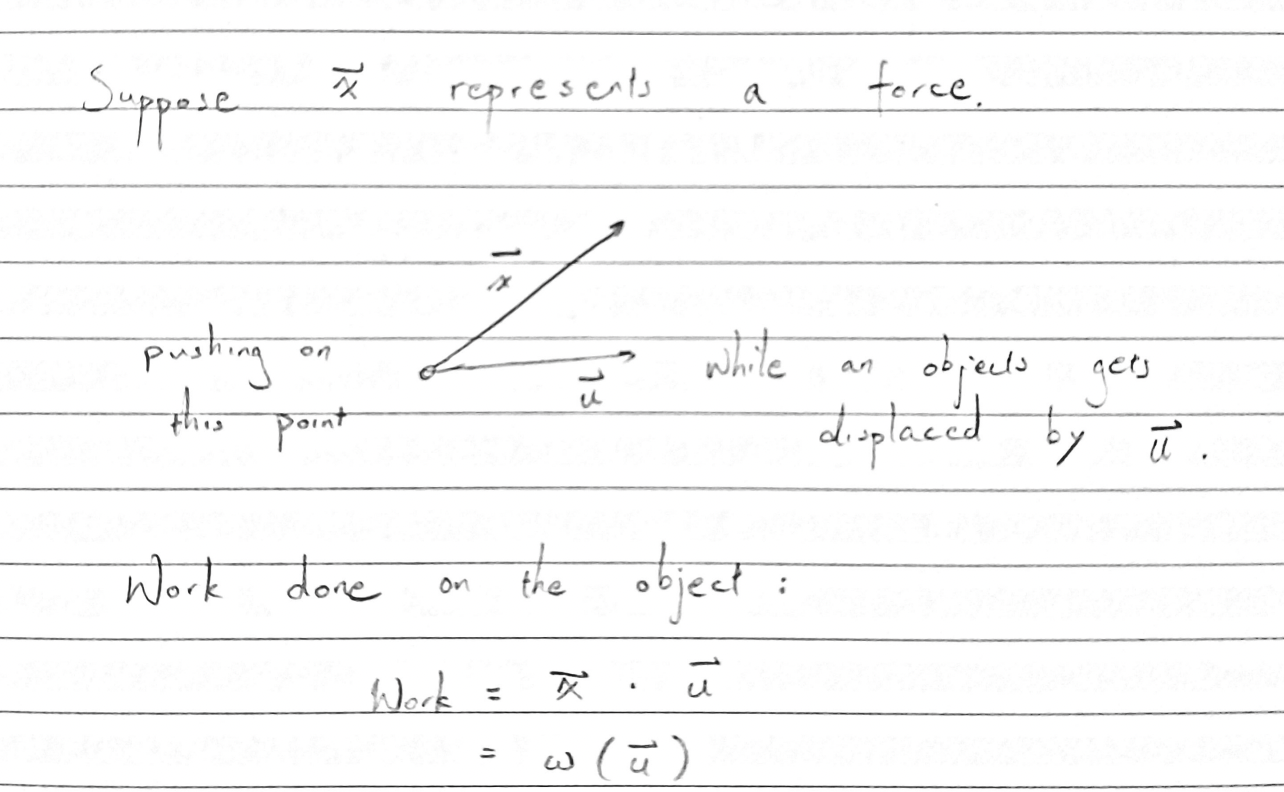 Suppose x⃗ represents a force.
x⃗
pushing on
this point
u⃗
while an objects gets
displaced by u⃗.
Work done on the object :
Work = x⃗ · u⃗
= ω ( u⃗ )